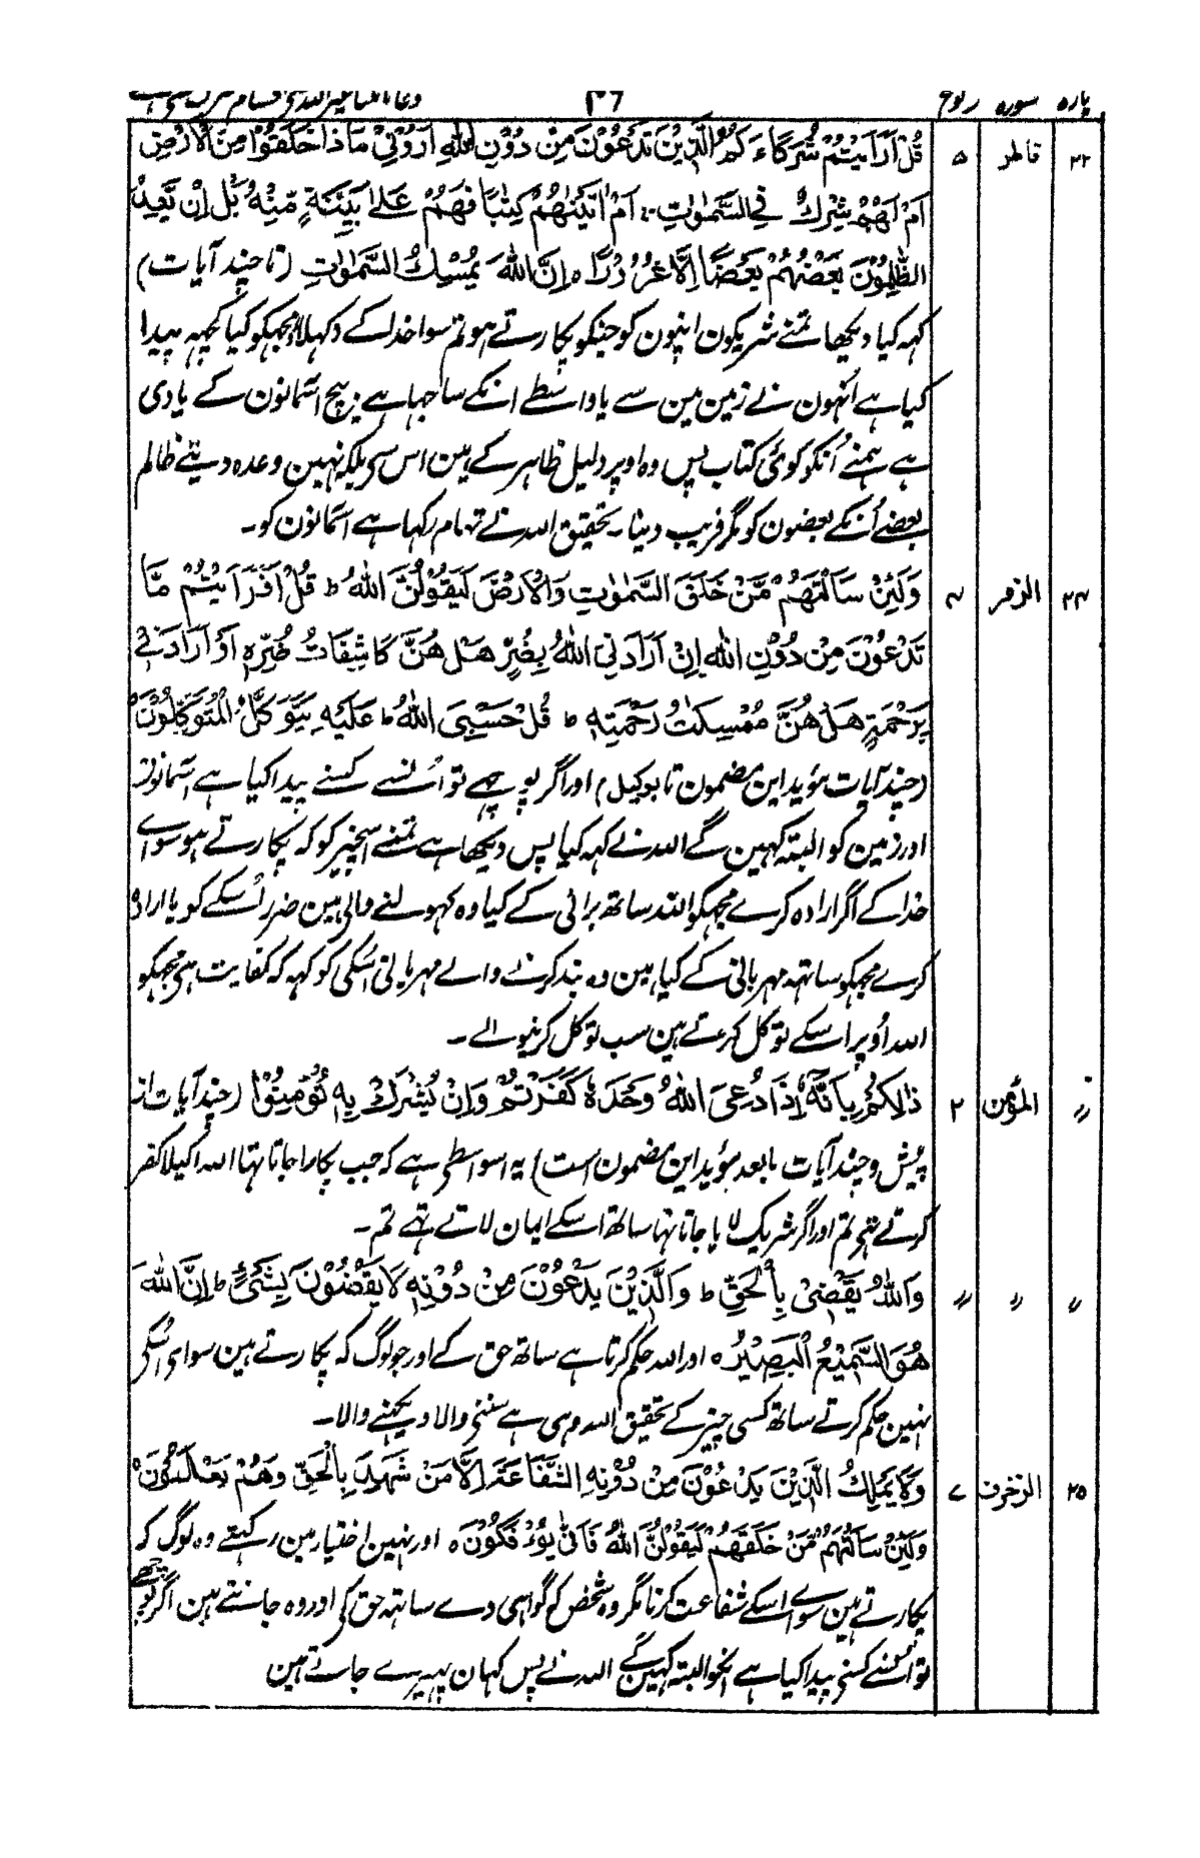 پارہ سورہ رکوع ۳۶
۲۲ فاطر ۵ قُلْ اَرَاَيْتُمْ شُرَكَاءَكُمُ الَّذِيْنَ تَدْعُوْنَ مِنْ دُوْنِ اللّٰهِ اَرُوْنِيْ مَاذَا خَلَقُوْا مِنَ الْاَرْضِ
اَمْ لَهُمْ شِرْكٌ فِي السَّمٰوٰتِ اَمْ اٰتَيْنٰهُمْ كِتٰبًا فَهُمْ عَلٰى بَيِّنَةٍ مِّنْهُ بَلْ اِنْ يَّعِدُ
الظّٰلِمُوْنَ بَعْضُهُمْ بَعْضًا اِلَّا غُرُوْرًا ٥ اِنَّ اللّٰهَ يُمْسِكُ السَّمٰوٰتِ (تا چند آیات)
کہہ کیا دیکھا تمنے شریکون اپنون کو جنکو پکارتے ہو تم سوا خدا کے دکھلاؤ مجھکو کیا کچہہ پیدا
کیا ہے اُنہون نے زمین مین سے یا واسطے انکے ساجہا ہے بیچ آسمانون کے یا دی
ہے ہمنے اُنکو کوئی کتاب پس وہ اوپر دلیل ظاہر کے ہین اس سے بلکہ نہین وعدہ دیتے ظالم
بعضے اُنکے بعضون کو مگر فریب دینا۔ تحقیق اللہ نے تہام رکہا ہے آسمانون کو۔
۲۴ الزمر ۴ وَلَئِنْ سَاَلْتَهُمْ مَّنْ خَلَقَ السَّمٰوٰتِ وَالْاَرْضَ لَيَقُوْلُنَّ اللّٰهُ ط قُلْ اَفَرَاَيْتُمْ مَّا
تَدْعُوْنَ مِنْ دُوْنِ اللّٰهِ اِنْ اَرَادَنِيَ اللّٰهُ بِضُرٍّ هَلْ هُنَّ كَاشِفَاتُ ضُرِّهٖ اَوْ اَرَادَنِيْ
بِرَحْمَةٍ هَلْ هُنَّ مُمْسِكٰتُ رَحْمَتِهٖ ط قُلْ حَسْبِيَ اللّٰهُ ط عَلَيْهِ يَتَوَكَّلُ الْمُتَوَكِّلُوْنَ
(چند آیات مؤید این مضمون تا بوکیل) اور اگر پوچہے تو اُنسے کسنے پیدا کیا ہے آسمانون
اور زمین کو البتہ کہین گے اللہ نے کہہ کیا پس دیکھا ہے تمنے اسچیز کو کہ پکارتے ہو سواے
خدا کے اگر ارادہ کرے مجہکو اللہ ساتھ برائی کے کیا وہ کہولنے والی ہین ضرر اُسکے کو یا ارادہ
کرے مجہکو ساتہہ مہربانی کے کیا ہین وہ بند کرنے والے مہربانی اُسکی کو کہہ کہ کفایت ہے مجہکو
اللہ اُوپر اسکے توکل کرتے ہین سب توکل کرنیوالے۔
〃 المؤمن ۲ ذٰلِكُمْ بِاَنَّهٗ اِذَا دُعِيَ اللّٰهُ وَحْدَهٗ كَفَرْتُمْ وَاِنْ يُّشْرَكْ بِهٖ تُؤْمِنُوْا (چند آیات از
پیش و چند آیات بابعد مؤید این مضمون است) یہ اسواسطی ہے کہ جب پکارا جاتا تہا اللہ اکیلا کفر
کرتے تہے تم اور اگر شریک لایا جاتا تہا ساتھ اسکے ایمان لاتے تہے تم۔
〃 〃 〃 وَاللّٰهُ يَقْضِيْ بِالْحَقِّ ط وَالَّذِيْنَ يَدْعُوْنَ مِنْ دُوْنِهٖ لَا يَقْضُوْنَ بِشَيْءٍ ط اِنَّ اللّٰهَ
هُوَ السَّمِيْعُ الْبَصِيْرُ ٥ اور اللہ حکم کرتا ہے ساتھ حق کے اور جو لوگ کہ پکارتے ہین سوای اُسکی
نہین حکم کرتے ساتھ کسی چیز کے تحقیق اللہ وہی ہے سننے والا دیکہنے والا۔
۲۵ الزخرف ۷ وَلَا يَمْلِكُ الَّذِيْنَ يَدْعُوْنَ مِنْ دُوْنِهِ الشَّفَاعَةَ اِلَّا مَنْ شَهِدَ بِالْحَقِّ وَهُمْ يَعْلَمُوْنَ
وَلَئِنْ سَاَلْتَهُمْ مَّنْ خَلَقَهُمْ لَيَقُوْلُنَّ اللّٰهُ فَاَنّٰى يُؤْفَكُوْنَ ٥ اور نہین اختیار مین رکہتے وہ لوگ کہ
پکارتے ہین سواے اسکے شفاعت کرنا مگر وہ شخص کہ گواہی دے ساتہہ حق کی اور وہ جانتے ہین اگر پوچہے
تو اُنسے کسنے پیدا کیا ہے انکو البتہ کہین گے اللہ نے پس کہان پہیرے جاتے ہین